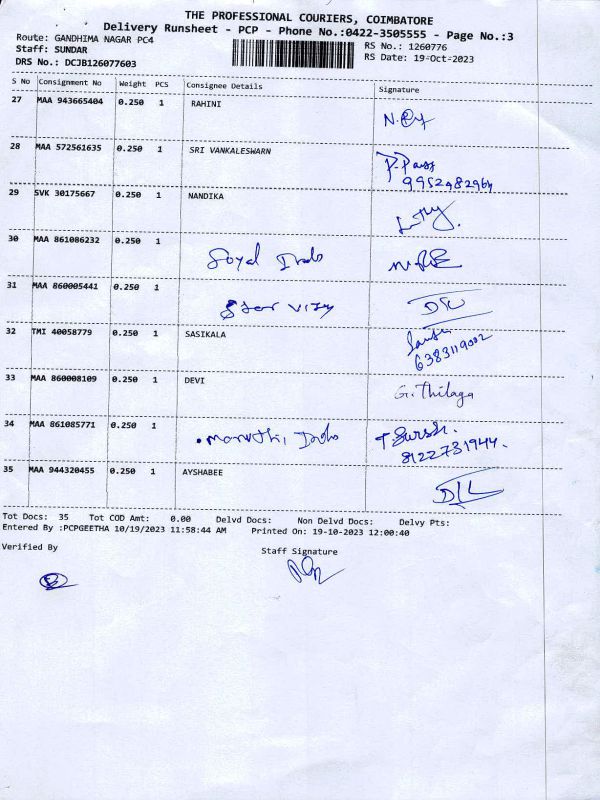 THE PROFESSIONAL COURIERS, COIMBATORE
Delivery Runsheet - PCP - Phone No.:0422-3505555 - Page No.:3
Route: GANDHIMA NAGAR PC4
RS No.: 1260776
Staff: SUNDAR
RS Date: 19-Oct-2023
DRS No.: DCJB126077603
S No Consignment No Weight PCS Consignee Details Signature
27 MAA 943665404 0.250 1 RAHINI
28 MAA 572561635 0.250 1 SRI VANKALESWARN
9952982964
29 SVK 30175667 0.250 1 NANDIKA
30 MAA 861086232 0.250 1
31 MAA 860005441 0.250 1 Star Vijay
32 TMI 40058779 0.250 1 SASIKALA
6383119002
33 MAA 860008109 0.250 1 DEVI G. Thilaga
34 MAA 861085771 0.250 1
8122731944.
35 MAA 944320455 0.250 1 AYSHABEE
Tot Docs: 35 Tot COD Amt: 0.00 Delvd Docs: Non Delvd Docs: Delvy Pts:
Entered By :PCPGEETHA 10/19/2023 11:58:44 AM Printed On: 19-10-2023 12:00:40
Verified By Staff Signature